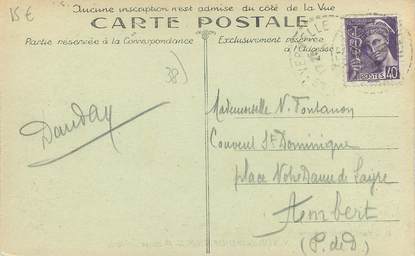 15€
Aucune inscription n'est admise du côté de la Vue
CARTE POSTALE
Partie réservée à la Correspondance
Exclusivement réservée
à l'Adresse
POSTES
40
Mademoiselle V. Fontanon
Couvent St Dominique
place Notre Dame de Layre
Ambert
(P. de D.)